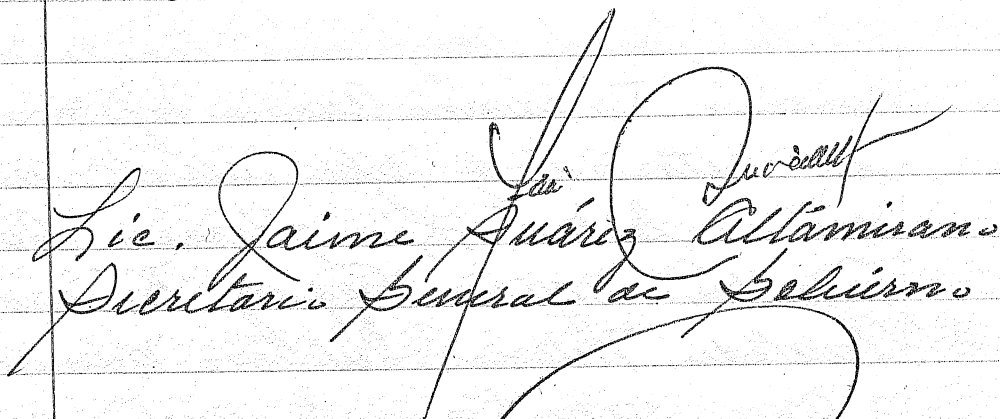 Lic. Jaime Suárez Altamirano
Secretario General de Gobierno